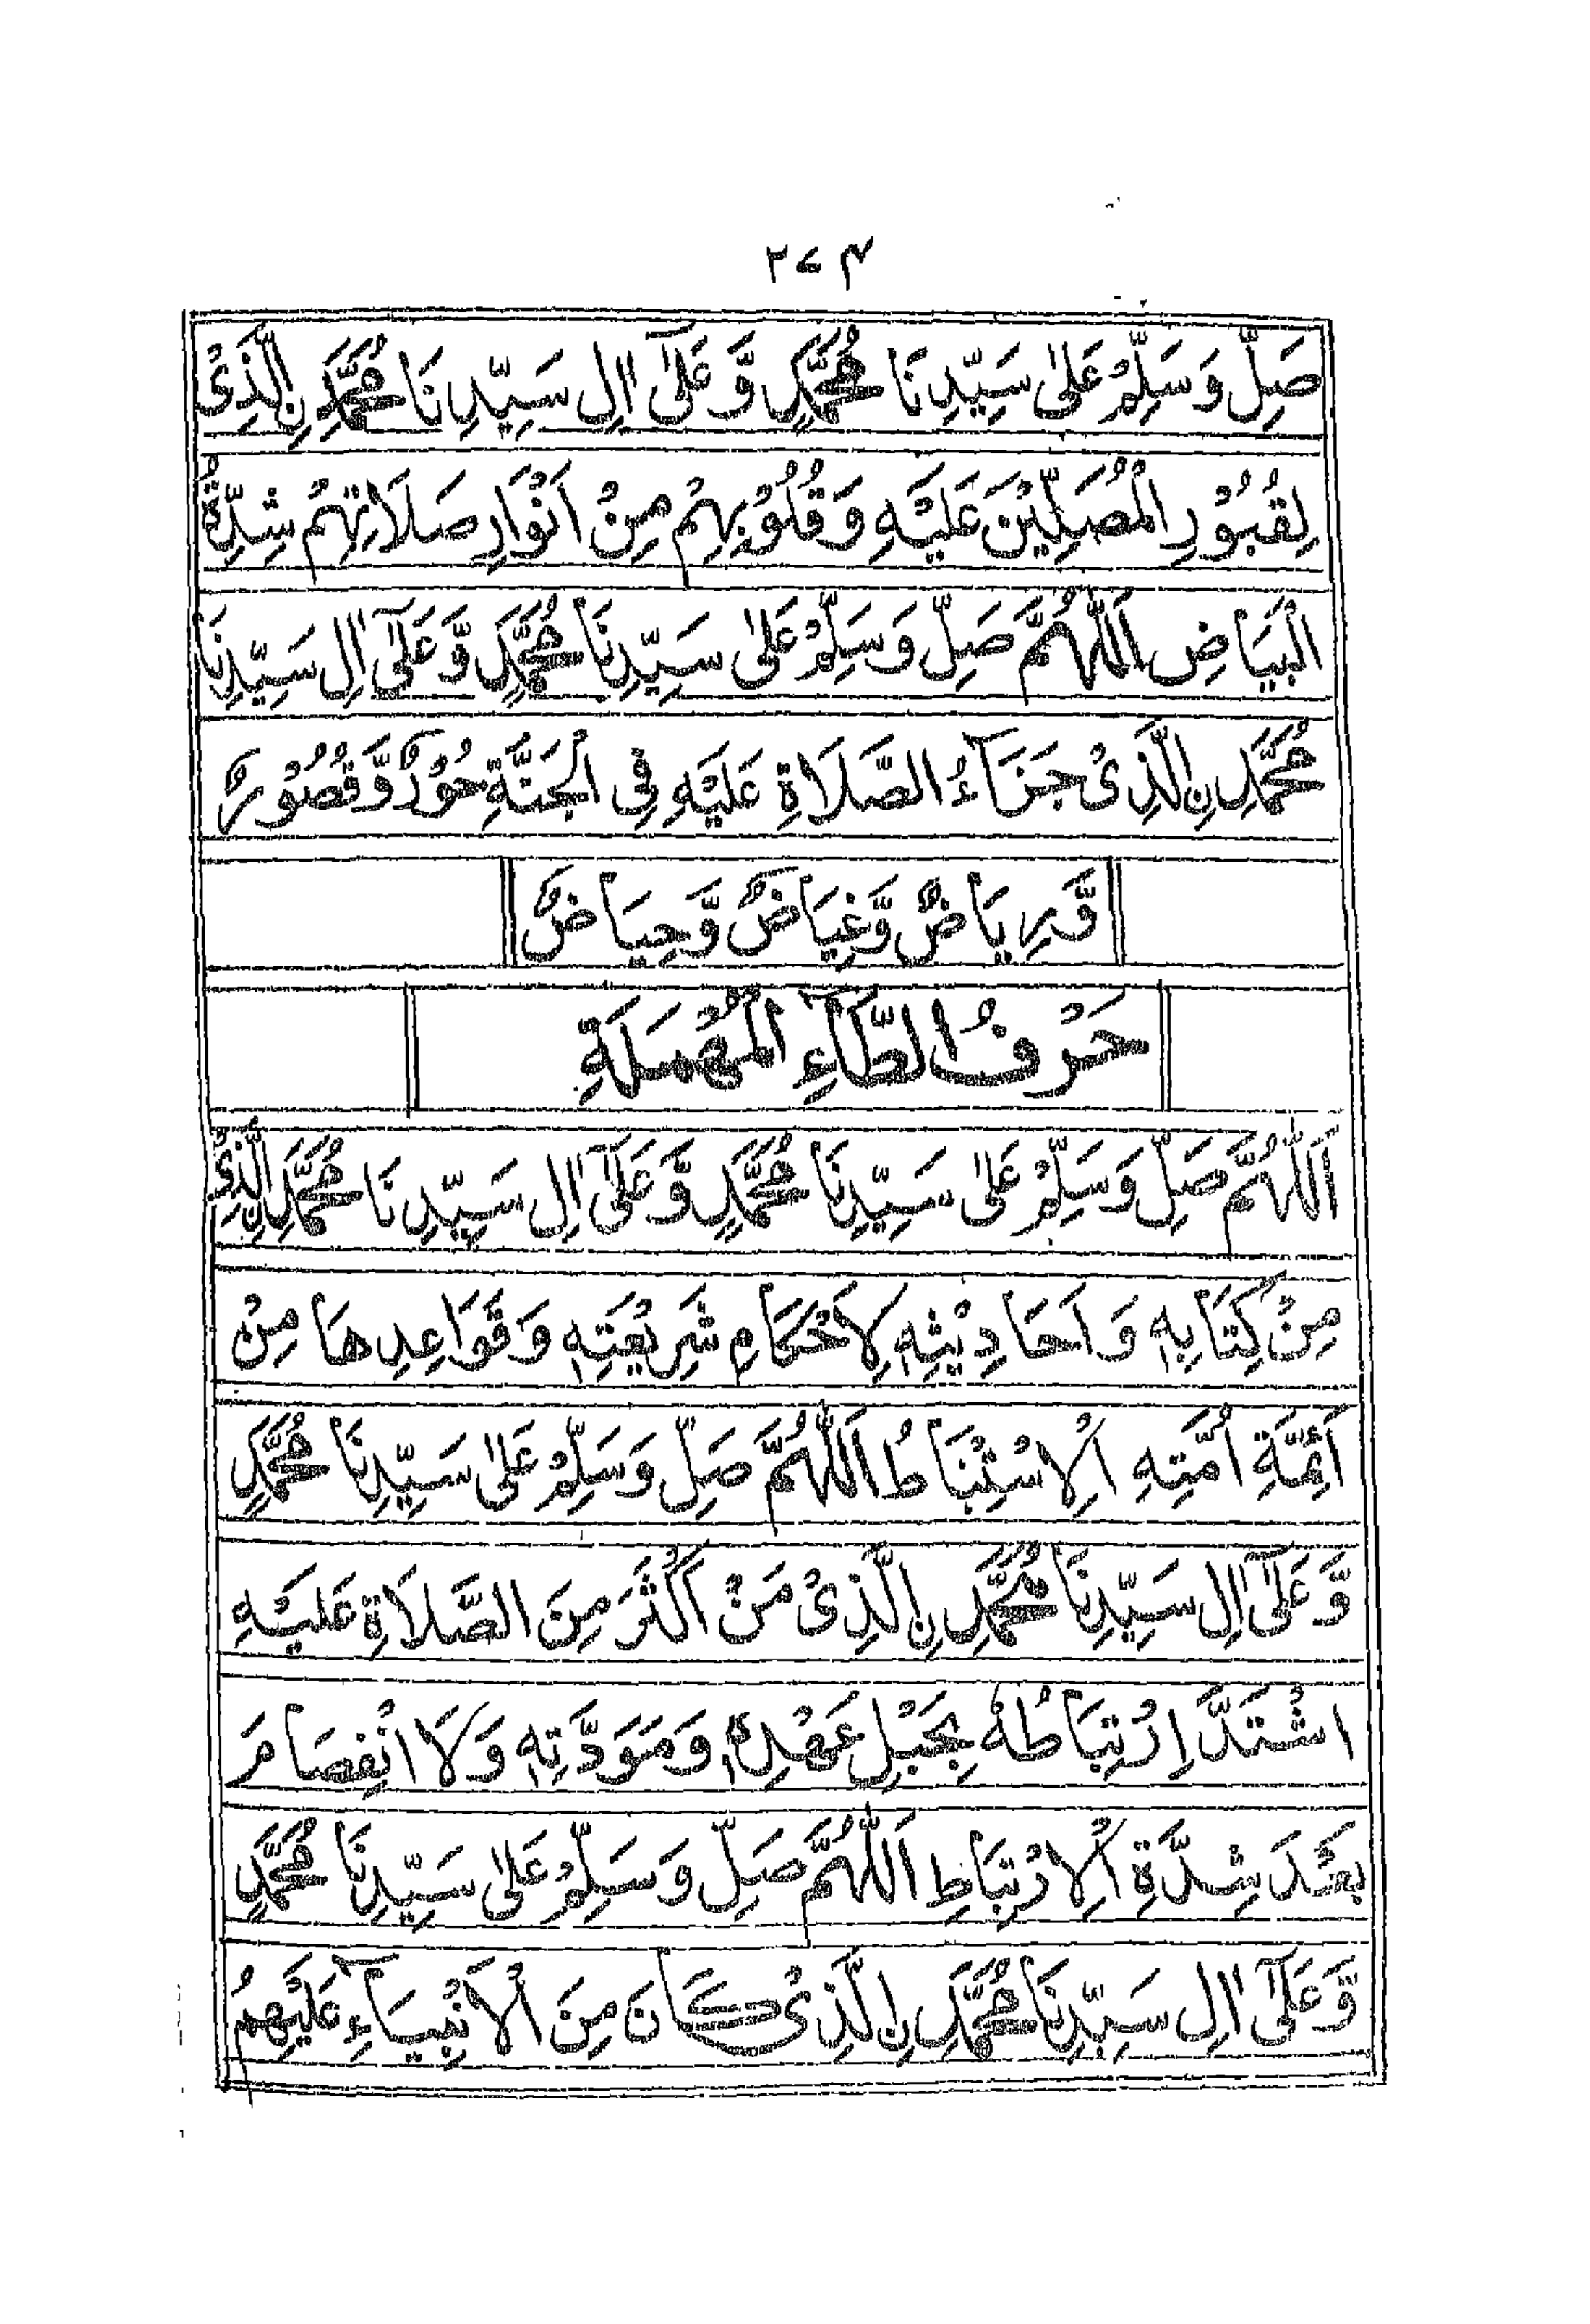 ۲۷۴
صَلِّ وَسَلِّمْ عَلٰى سَيِّدِنَا مُحَمَّدٍ وَّعَلٰٓى اٰلِ سَيِّدِنَا مُحَمَّدِنِ الَّذِىْ
لِقُبُوْرِ الْمُصَلِّيْنَ عَلَيْهِ وَقُلُوْبِهِمْ مِنْ اَنْوَارِ صَلَاتِهِمْ شِدَّةُ
الْبَيَاضِ اَللّٰهُمَّ صَلِّ وَسَلِّمْ عَلٰى سَيِّدِنَا مُحَمَّدٍ وَّعَلٰٓى اٰلِ سَيِّدِنَا
مُحَمَّدِنِ الَّذِىْ جَزَآءُ الصَّلَاةِ عَلَيْهِ فِى الْجَنَّةِ حُوْرٌ وَّقُصُوْرٌ
وَّرِيَاضٌ وَّغِيَاضٌ وَّحِيَاضٌ
حَرْفُ الطَّآءِ الْمُهْمَلَةِ
اَللّٰهُمَّ صَلِّ وَسَلِّمْ عَلٰى سَيِّدِنَا مُحَمَّدٍ وَّعَلٰٓى اٰلِ سَيِّدِنَا مُحَمَّدِنِ الَّذِىْ
مِنْ كِتَابِهٖ وَاَحَادِيْثِهٖ لِاَحْكَامِ شَرِيْعَتِهٖ وَقَوَاعِدِهَا مِنْ
اَئِمَّةِ اُمَّتِهِ الْاِسْتِنْبَاطُ اَللّٰهُمَّ صَلِّ وَسَلِّمْ عَلٰى سَيِّدِنَا مُحَمَّدٍ
وَّعَلٰٓى اٰلِ سَيِّدِنَا مُحَمَّدِنِ الَّذِىْ مَنْ اَكْثَرَ مِنَ الصَّلَاةِ عَلَيْهِ
اشْتَدَّ اِرْتِبَاطُهٗ بِحَبْلِ عَهْدِهٖ وَمَوَدَّتِهٖ وَلَا انْفِصَامَ
بَعْدَ شِدَّةِ الْاِرْتِبَاطِ اَللّٰهُمَّ صَلِّ وَسَلِّمْ عَلٰى سَيِّدِنَا مُحَمَّدٍ
وَّعَلٰٓى اٰلِ سَيِّدِنَا مُحَمَّدِنِ الَّذِىْ كَانَ مِنَ الْاَنْبِيَآءِ عَلَيْهِمُ